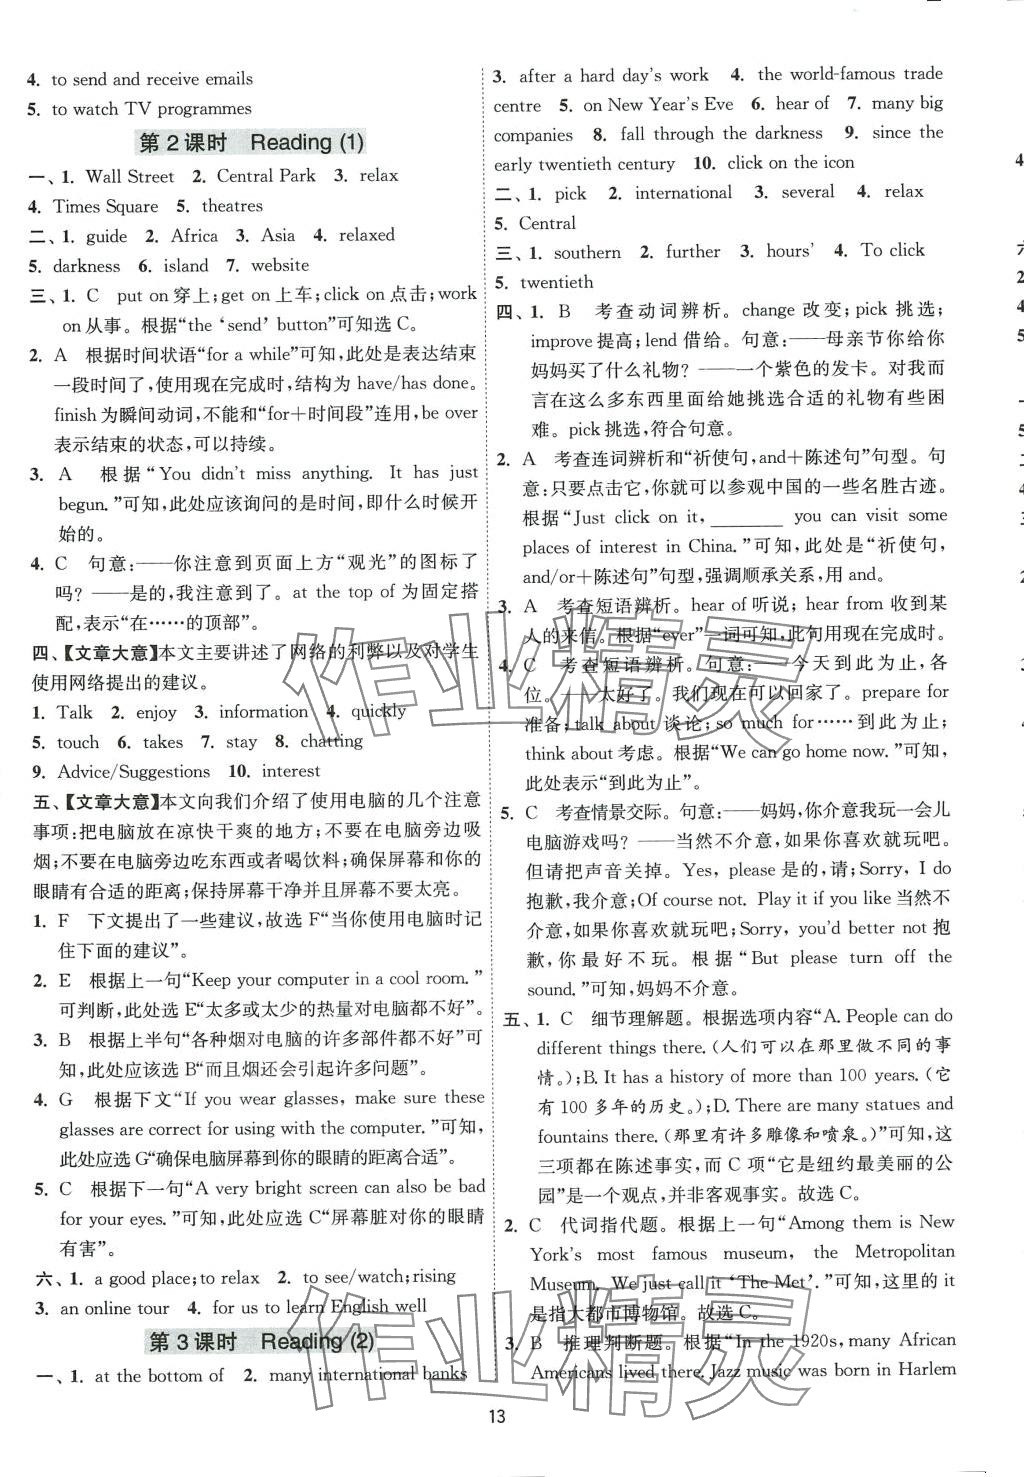 4. to send and receive emails
5. to watch TV programmes
第2课时 Reading (1)
一、1. Wall Street 2. Central Park 3. relax
4. Times Square 5. theatres
二、1. guide 2. Africa 3. Asia 4. relaxed
5. darkness 6. island 7. website
三、1. C put on穿上;get on上车;click on点击;work
on从事。根据“the ‘send’ button”可知选C。
2. A 根据时间状语“for a while”可知,此处是表达结束
一段时间了,使用现在完成时,结构为 have/has done。
finish为瞬间动词,不能和“for+时间段”连用,be over
表示结束的状态,可以持续。
3. A 根据“You didn't miss anything. It has just
begun.”可知,此处应该询问的是时间,即什么时候开
始的。
4. C 句意:——你注意到页面上方“观光”的图标了
吗? ——是的,我注意到了。at the top of为固定搭
配,表示“在……的顶部”。
四、【文章大意】本文主要讲述了网络的利弊以及对学生
使用网络提出的建议。
1. Talk 2. enjoy 3. information 4. quickly
5. touch 6. takes 7. stay 8. chatting
9. Advice/Suggestions 10. interest
五、【文章大意】本文向我们介绍了使用电脑的几个注意
事项:把电脑放在凉快干爽的地方;不要在电脑旁边吸
烟;不要在电脑旁边吃东西或者喝饮料;确保屏幕和你的
眼睛有合适的距离;保持屏幕干净并且屏幕不要太亮。
1. F 下文提出了一些建议,故选F“当你使用电脑时记
住下面的建议”。
2. E 根据上一句“Keep your computer in a cool room.”
可判断,此处选E“太多或太少的热量对电脑都不好”。
3. B 根据上半句“各种烟对电脑的许多部件都不好”可
知,此处应该选B“而且烟还会引起许多问题”。
4. G 根据下文“If you wear glasses, make sure these
glasses are correct for using with the computer.”可知,
此处应选G“确保电脑屏幕到你的眼睛的距离合适”。
5. C 根据下一句“A very bright screen can also be bad
for your eyes.”可知,此处应选C“屏幕脏对你的眼睛
有害”。
六、1. a good place;to relax 2. to see/watch;rising
3. an online tour 4. for us to learn English well
第3课时 Reading (2)
一、1. at the bottom of 2. many international banks
3. after a hard day's work 4. the world-famous trade
centre 5. on New Year's Eve 6. hear of 7. many big
companies 8. fall through the darkness 9. since the
early twentieth century 10. click on the icon
二、1. pick 2. international 3. several 4. relax
5. Central
三、1. southern 2. further 3. hours' 4. To click
5. twentieth
四、1. B 考查动词辨析。change 改变;pick 挑选;
improve提高;lend借给。句意:——母亲节你给你
妈妈买了什么礼物? ——一个紫色的发卡。对我而
言在这么多东西里面给她挑选合适的礼物有些困
难。pick挑选,符合句意。
2. A 考查连词辨析和“祈使句,and+陈述句”句型。句
意:只要点击它,你就可以参观中国的一些名胜古迹。
根据“Just click on it, ________ you can visit some
places of interest in China.”可知,此处是“祈使句,
and/or+陈述句”句型,强调顺承关系,用and。
3. A 考查短语辨析。hear of听说;hear from收到某
人的来信。根据“ever”一词可知,此句用现在完成时。
4. C 考查短语辨析。句意:——今天到此为止,各
位。——太好了。我们现在可以回家了。prepare for
准备;talk about 谈论;so much for……到此为止;
think about考虑。根据“We can go home now.”可知,
此处表示“到此为止”。
5. C 考查情景交际。句意:——妈妈,你介意我玩一会儿
电脑游戏吗? ——当然不介意,如果你喜欢就玩吧。
但请把声音关掉。Yes, please是的,请;Sorry, I do
抱歉,我介意;Of course not. Play it if you like当然不
介意,如果你喜欢就玩吧;Sorry, you'd better not抱
歉,你最好不玩。根据“But please turn off the
sound.”可知,妈妈不介意。
五、1. C 细节理解题。根据选项内容“A. People can do
different things there.(人们可以在那里做不同的事
情。);B. It has a history of more than 100 years.(它
有100多年的历史。);D. There are many statues and
fountains there.(那里有许多雕像和喷泉。)”可知,这
三项都在陈述事实,而C项“它是纽约最美丽的公
园”是一个观点,并非客观事实。故选C。
2. C 代词指代题。根据上一句“Among them is New
York's most famous museum, the Metropolitan
Museum. We just call it ‘The Met’.”可知,这里的it
是指大都市博物馆。故选C。
3. B 推理判断题。根据“In the 1920s, many African
Americans lived there. Jazz music was born in Harlem
13
作业精灵
作业精灵